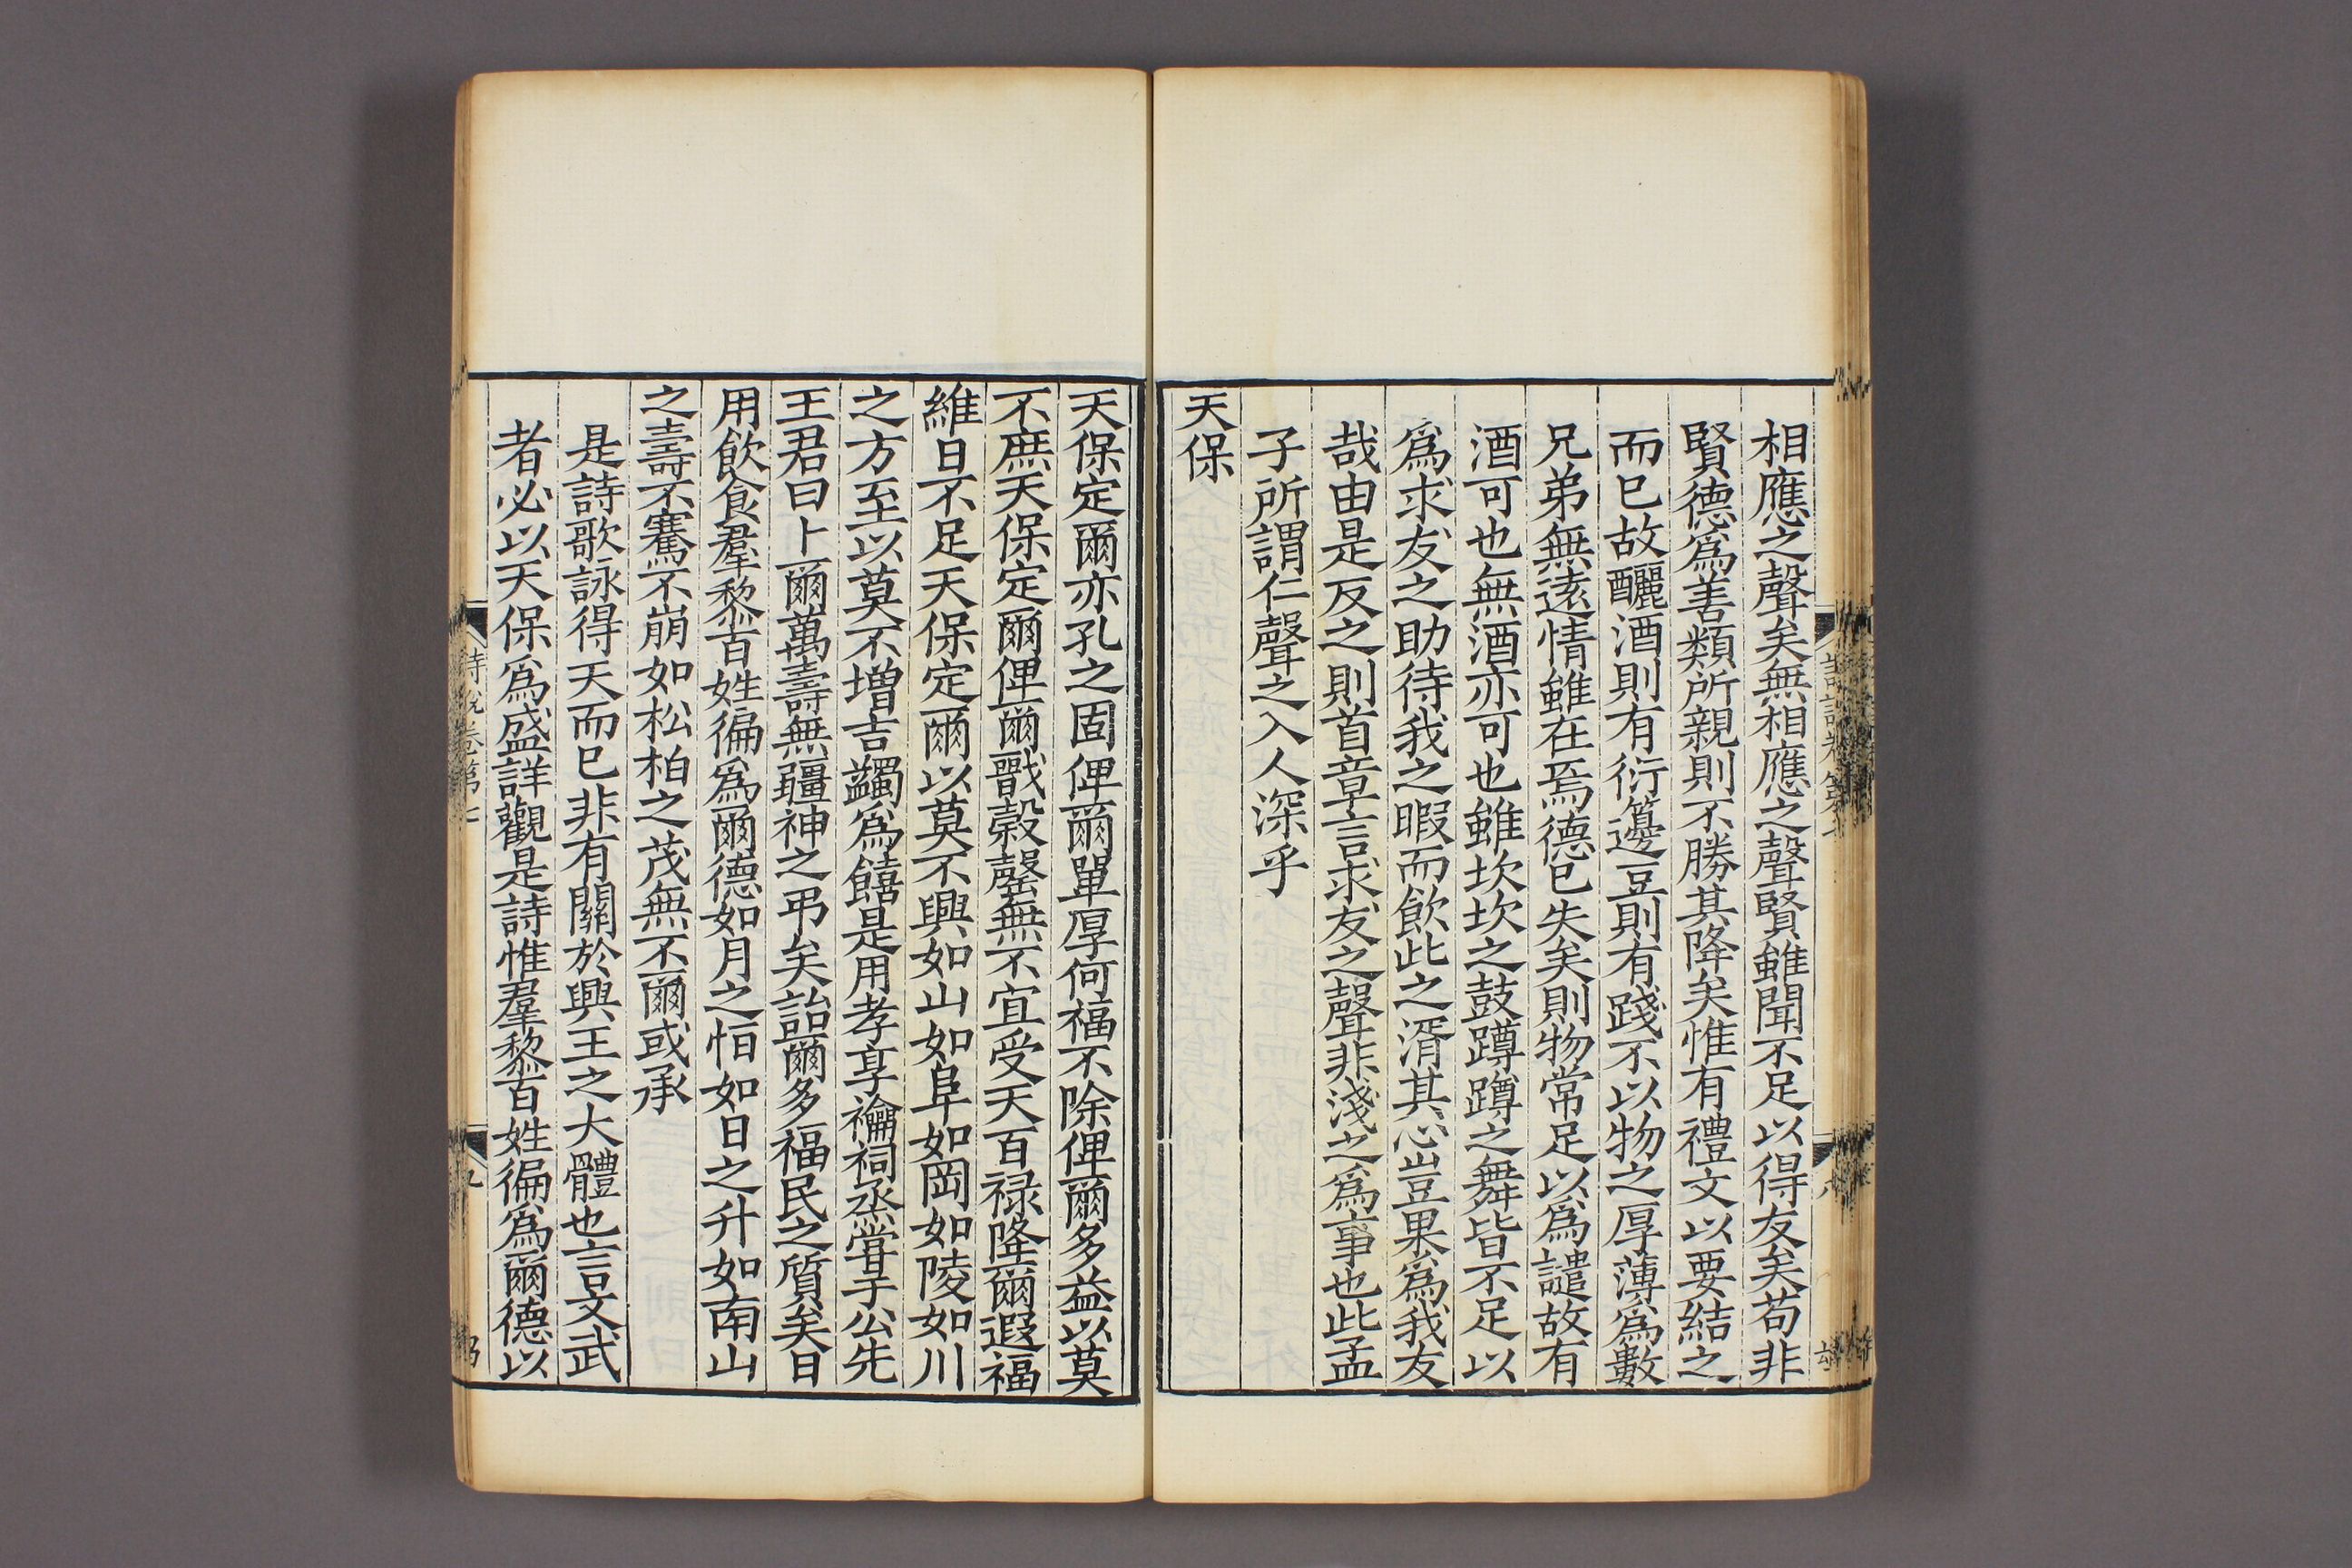 相應之聲矣無相應之聲賢雖聞不足以得友矣苟非
賢德爲善類所親則不勝其降矣惟有禮文以要結之
而已故釃酒則有衍籩豆則有踐不以物之厚薄爲數
兄弟無遠情雖在焉德已失矣則物常足以爲譴故有
酒可也無酒亦可也雖坎坎之鼓蹲蹲之舞皆不足以
爲求友之助待我之暇而飲此之湑其心豈果爲我友
哉由是反之則首章言求友之聲非淺之爲事也此孟
子所謂仁聲之入人深乎
天保
天保定爾亦孔之固俾爾單厚何福不除俾爾多益以莫
不庶天保定爾俾爾戩穀罄無不宜受天百禄降爾遐福
維日不足天保定爾以莫不興如山如阜如岡如陵如川
之方至以莫不增吉蠲爲饎是用孝享禴祠烝嘗于公先
王君曰卜爾萬壽無疆神之弔矣詒爾多福民之質矣日
用飲食羣黎百姓徧爲爾德如月之恒如日之升如南山
之壽不騫不崩如松柏之茂無不爾或承
是詩歌詠得天而已非有關於興王之大體也言文武
者必以天保爲盛詳觀是詩惟羣黎百姓徧爲爾德以
詩說卷第七